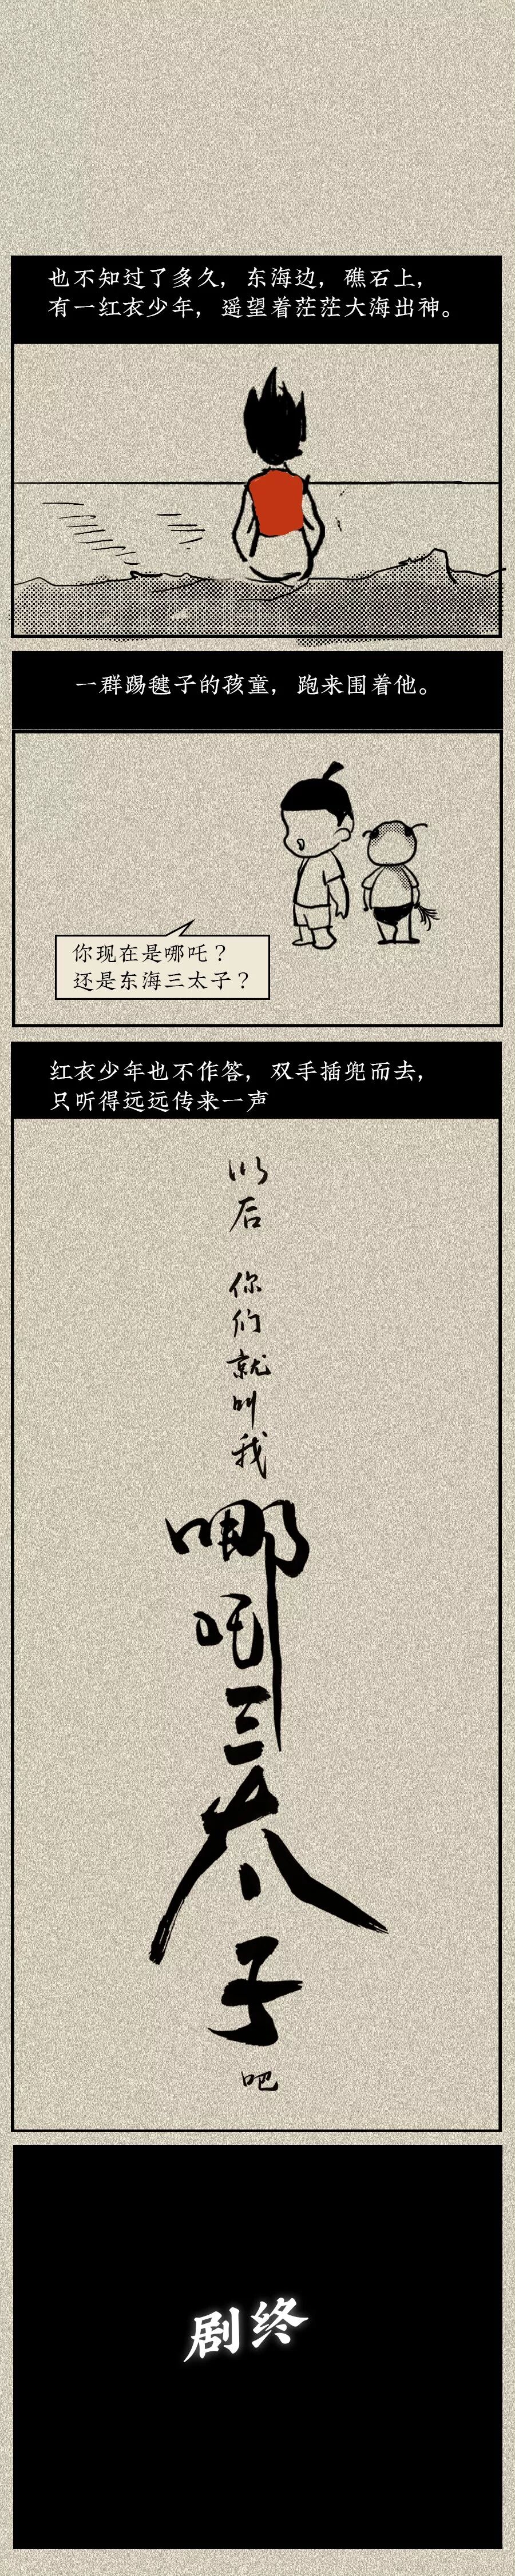 也不知过了多久，东海边，礁石上，
有一红衣少年，遥望着茫茫大海出神。
一群踢毽子的孩童，跑来围着他。
你现在是哪吒？
还是东海三太子？
红衣少年也不作答，双手插兜而去，
只听得远远传来一声
以后
你们就叫我
哪吒三太子
吧
剧终